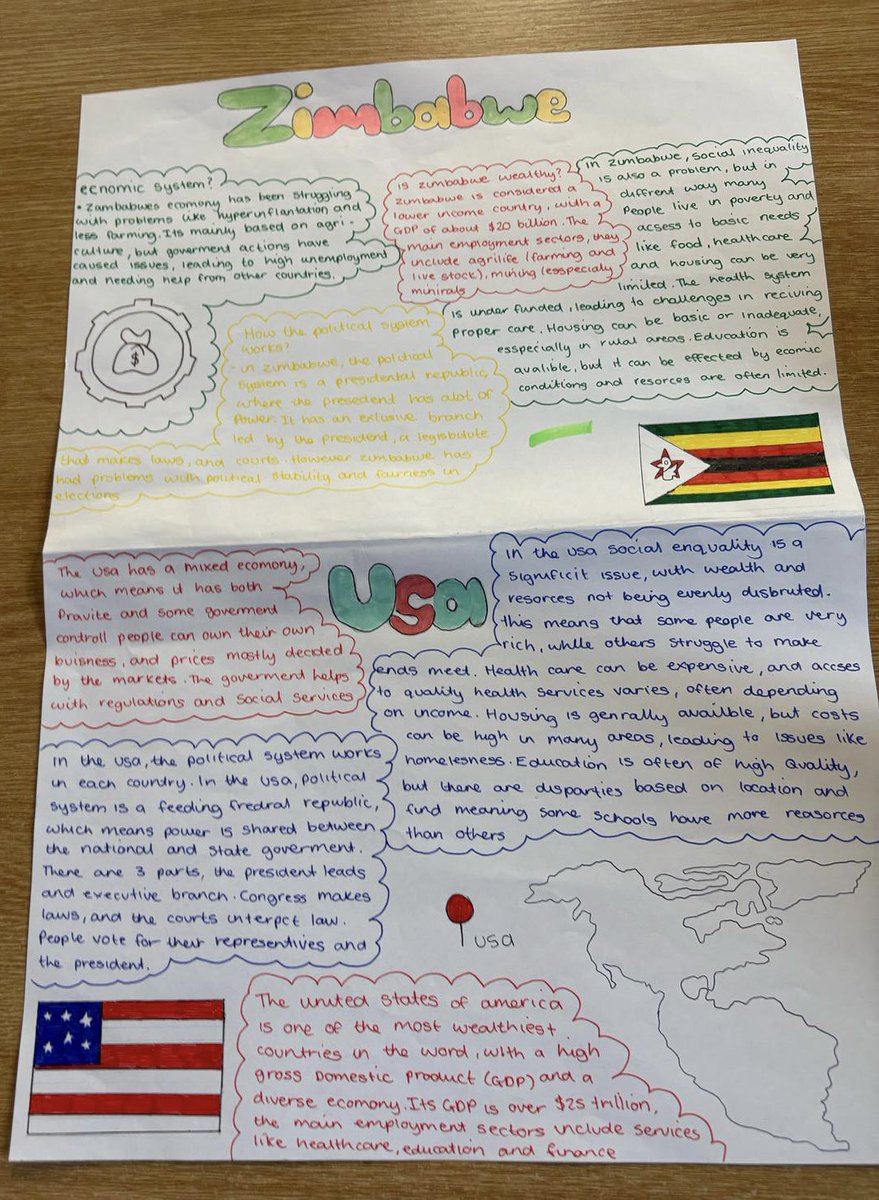 Zimbabwe
ecnomic system?
• Zambabwes ecomony has been struggling
with problems like hyperinflantation and
less farming. Its mainly based on agri-
culture, but goverment actions have
caused issues, leading to high unemployment
and needing help from other countries.
$
Is zumbabwe wealthy?
Zumbabwe is considered a
lower income country, with a
GDP of about $20 billion. The
main employment sectors, they
include agrilife (farming and
live stock), mining (esspecially
minirals
In zumbabwe, social inequality
is also a problem, but in
different way many
People live in poverty and
acsess to basic needs
like food, healthcare
and housing can be very
limited. The health system
is under funded, leading to challenges in reciving
proper care. Housing can be basic or inadequate,
esspecially in rural areas. Education is
avalible, but it can be effected by ecomic
conditions and resorces are often limited.
How the political system
works?
- in zimbabwe, the political
system is a presidental republic,
where the presedend has alot of
power. It has an exlusive branch
led by the president, a legisbulute
that makes laws, and courts. However zimbabwe has
had problems with political stability and fairness in
elections
Usa
The Usa has a mixed ecomony,
which means it has both
Pravite and some goverment
controll people can own their own
buisness, and prices mostly decided
by the markets. The goverment helps
with regulations and social services
In the usa social enquality is a
significit issue, with wealth and
resorces not being evenly disbruted.
this means that some people are very
rich, while others struggle to make
ends meet. Health care can be expensive, and accses
to quality health services varies, often depending
on income. Housing is genrally availble, but costs
can be high in many areas, leading to issues like
homelesness. Education is often of high Quality,
but there are disparties based on location and
find meaning some schools have more reasorces
than others
In the usa, the political system works
in each coundry. In the usa, political
system is a feeding fredral republic,
which means power is shared between
the national and state goverment.
There are 3 parts, the president leads
and executive branch. Congress makes
laws, and the courts interpct law.
People vote for their representives and
the president.
usa
The united states of america
is one of the most wealthiest
countries in the word, with a high
gross Domestic product (GDP) and a
diverse ecomony. Its GDP is over $25 trillion,
the main employment sectors include services
like healthcare, education and finance